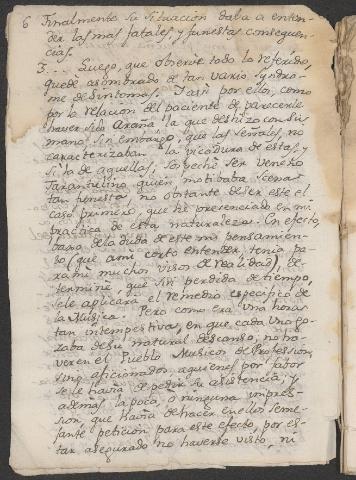 6 Finalmente su situacion daba a enten-
der las mas fatales, y funestas consequen-
cias.
3.... Luego, que observe todo lo referido,
quede asombrado de tan vario syndro-
me de Sintomas. Y asi por ello, como
por la relacion del paciente de parecerle
haver sido Araña la que deshizo con su
mano, sin embargo, que las señales, no
caracterizaban la picadura de estas, y
si la de aquellas, Sospeché ser veneno
Tarantulino quien motibaba scenas
tan funestas, no obstante de ser este el
caso primero, que hé presenciado en mi
practica de esta naturaleza. En efecto,
bajo de la duda de este mi pensamien-
to (que a mi corto entender, tenia pa-
ra mi muchos visos de realidad), de-
terminé, que sin perdida de tiempo,
se le aplicará el remedio especifico de
la Musica. Pero como era una horas
tan intempestivas, en que cada uno go-
zaba de su natural descanso, no ha-
ver en el Pueblo Musicos de Profession,
sino aficionados, a quienes por fabor
se le havia de pedir su asistencia, y
ademas la poca, o ninguna impres-
sion que havia de hacer en ellos seme-
jante peticion para este efecto, por es-
tar asegurado no haverse visto, ni